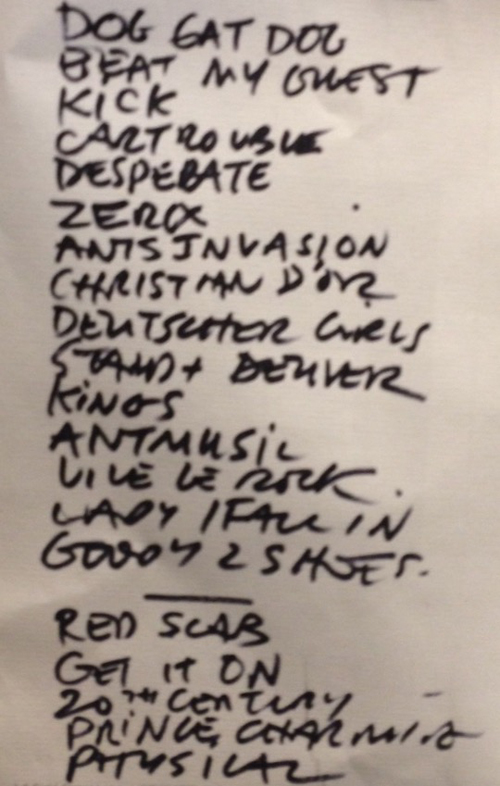 DOG EAT DOG
BEAT MY GUEST
KICK
CARTROUBLE
DESPERATE
ZEROX
ANTS INVASION
CHRISTIAN D'OR
DEUTSCHER GIRLS
STAND + DELIVER
KINGS
ANTMUSIC
VIVE LE ROCK.
LADY / FALL IN
GOODY 2 SHOES.
RED SCAB
GET IT ON
20TH CENTURY
PRINCE CHARMING
PHYSICAL